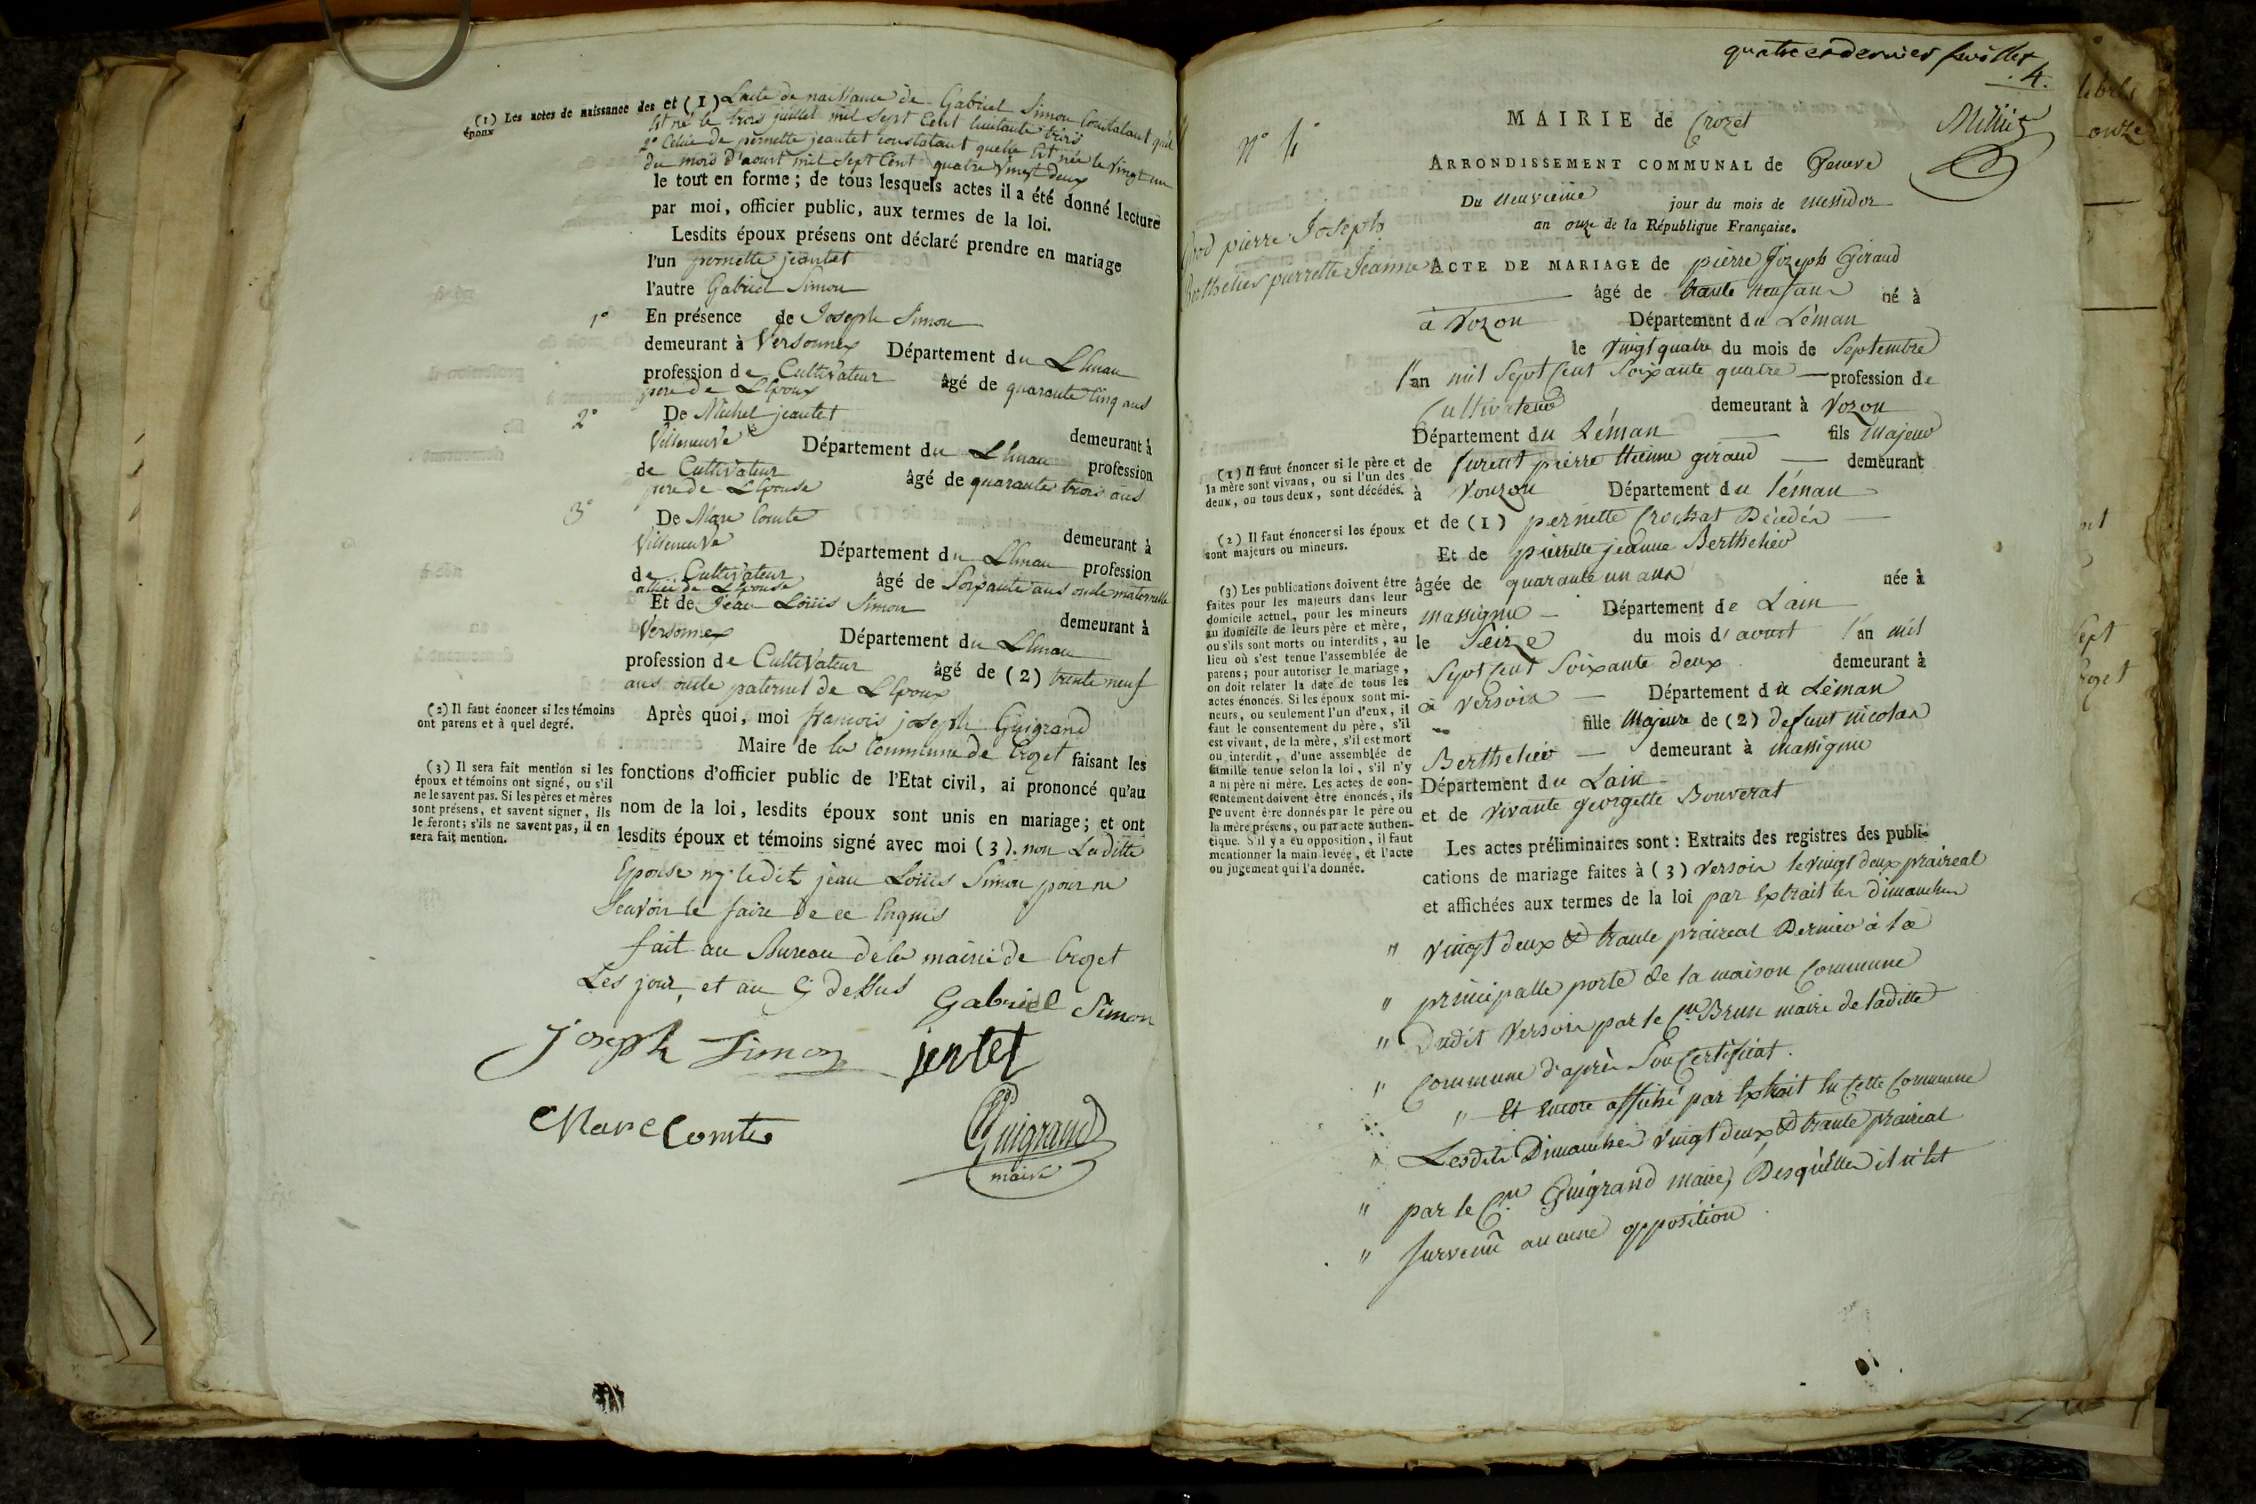 (1) Les actes de naissance des
époux
et (1) L'acte de naissance de Gabriel Simon Constatant qu'il
Est né le trois juillet mil sept Cent huitante trois
2° Celui de pernette jeantet constatant quelle Est née le vingt un
du mois d'aoust mil sept Cent quatre vingt deux
le tout en forme ; de tous lesquels actes il a été donné lecture
par moi, officier public, aux termes de la loi.
Lesdits époux présens ont déclaré prendre en mariage
l'un pernette jeantet
l'autre Gabriel Simon
1° En présence de Joseph Simon
demeurant à Versonnex Département du Léman
profession de Cultivateur âgé de quarante Cinq ans
pere de L'Epoux
2° De Michel jeantet demeurant à
Villeneuve Département du Léman profession
de Cultivateur âgé de quarante trois ans
pere de L'Epouse
3° De Marc Comte demeurant à
Villeneuve Département du Léman profession
de Cultivateur âgé de Soixante ans oncle maternelle
allié de L'Epouse
Et de Jean Loüis Simon demeurant à
Versonnex Département du Léman
profession de Cultivateur âgé de (2) trente neuf
ans oncle paternel de L'Epoux
(2) Il faut énoncer si les témoins
ont parens et à quel degré.
Après quoi, moi francois joseph Guigrand
Maire de la Commune de Crozet faisant les
fonctions d'officier public de l'Etat civil, ai prononcé qu'au
nom de la loi, lesdits époux sont unis en mariage ; et ont
lesdits époux et témoins signé avec moi (3). non Laditte
(3) Il sera fait mention si les
époux et témoins ont signé, ou s'il
ne le savent pas. Si les pères et mères
sont présens, et savent signer, ils
le feront ; s'ils ne savent pas, il en
sera fait mention.
Epouse ny ledit jean Loüis Simon pour ne
Scavoir le faire de ce Enquis
fait au Bureau de la mairie de Crozet
Les jour, et an Cy dessus
Gabriel Simon
joseph Simon jentet
Marc Comte
Guigrand
maire
quatre et dernier feuillet
4.
Milliet
N° 4
MAIRIE de Crozet
ARRONDISSEMENT COMMUNAL de Geneve
Du Neuvieme jour du mois de messidor
an onze de la République Française.
pierre Joseph
Berthelier pierrette Jeanne
ACTE DE MARIAGE de pierre Jozeph Giraud
âgé de trante neuf ans né à
à Vozon Département du Léman
le vingt quatre du mois de Septembre
l'an mil Sept Cent Soixante quatre profession de
Cultivateur demeurant à Vozon
Département du Léman fils Majeur
de furent pierre Etienne giraud demeurant
à Vouzon Département du Léman
et de (1) pernette Crochat Décédés
Et de pierrette jeanne Berthelier
âgée de quarante un ans née à
massignu Département de Lain
le Seize du mois d'avoust l'an mil
Sept Cent Soixante deux demeurant à
à Versoix Département du Léman
fille Majeure de (2) defunt nicolas
Berthelier demeurant à massignu
Département du Lain
et de vivante georgette Bouverat
(1) Il faut énoncer si le père et
la mère sont vivans, ou si l'un des
deux, ou tous deux, sont décédés.
(2) Il faut énoncer si les époux
sont majeurs ou mineurs.
(3) Les publications doivent être
faites pour les majeurs dans leur
domicile actuel, pour les mineurs
au domicile de leurs père et mère,
ou s'ils sont morts ou interdits, au
lieu où s'est tenue l'assemblée de
parens ; pour autoriser le mariage,
on doit relater la date de tous les
actes énoncés. Si les époux sont mi-
neurs, ou seulement l'un d'eux, il
faut le consentement du père, s'il
est vivant, de la mère, s'il est mort
ou interdit, d'une assemblée de
famille tenue selon la loi, s'il n'y
a ni père ni mère. Les actes de con-
sentement doivent être énoncés, ils
peuvent être donnés par le père ou
la mère présens, ou par acte authen-
tique. S'il y a eu opposition, il faut
mentionner la main levée, et l'acte
ou jugement qui l'a donnée.
Les actes préliminaires sont : Extraits des registres des publi-
cations de mariage faites à (3) versoix le vingt deux prairéal
et affichées aux termes de la loi par Extrait les dimanches
" vingt deux & trante prairéal Dernier à la
" principalle porte de la maison Commune
" Dudit Versoix par le Cen Brun maire de laditte
" Commune d'après Son Certificat.
" Et Encore affiché par Extrait En Cette Commune
" Lesdits Dimanches vingt deux & trante prairéal
" par le Cen Guigrand maire, Desquelles il n'est
" Survenu aucune opposition
onze